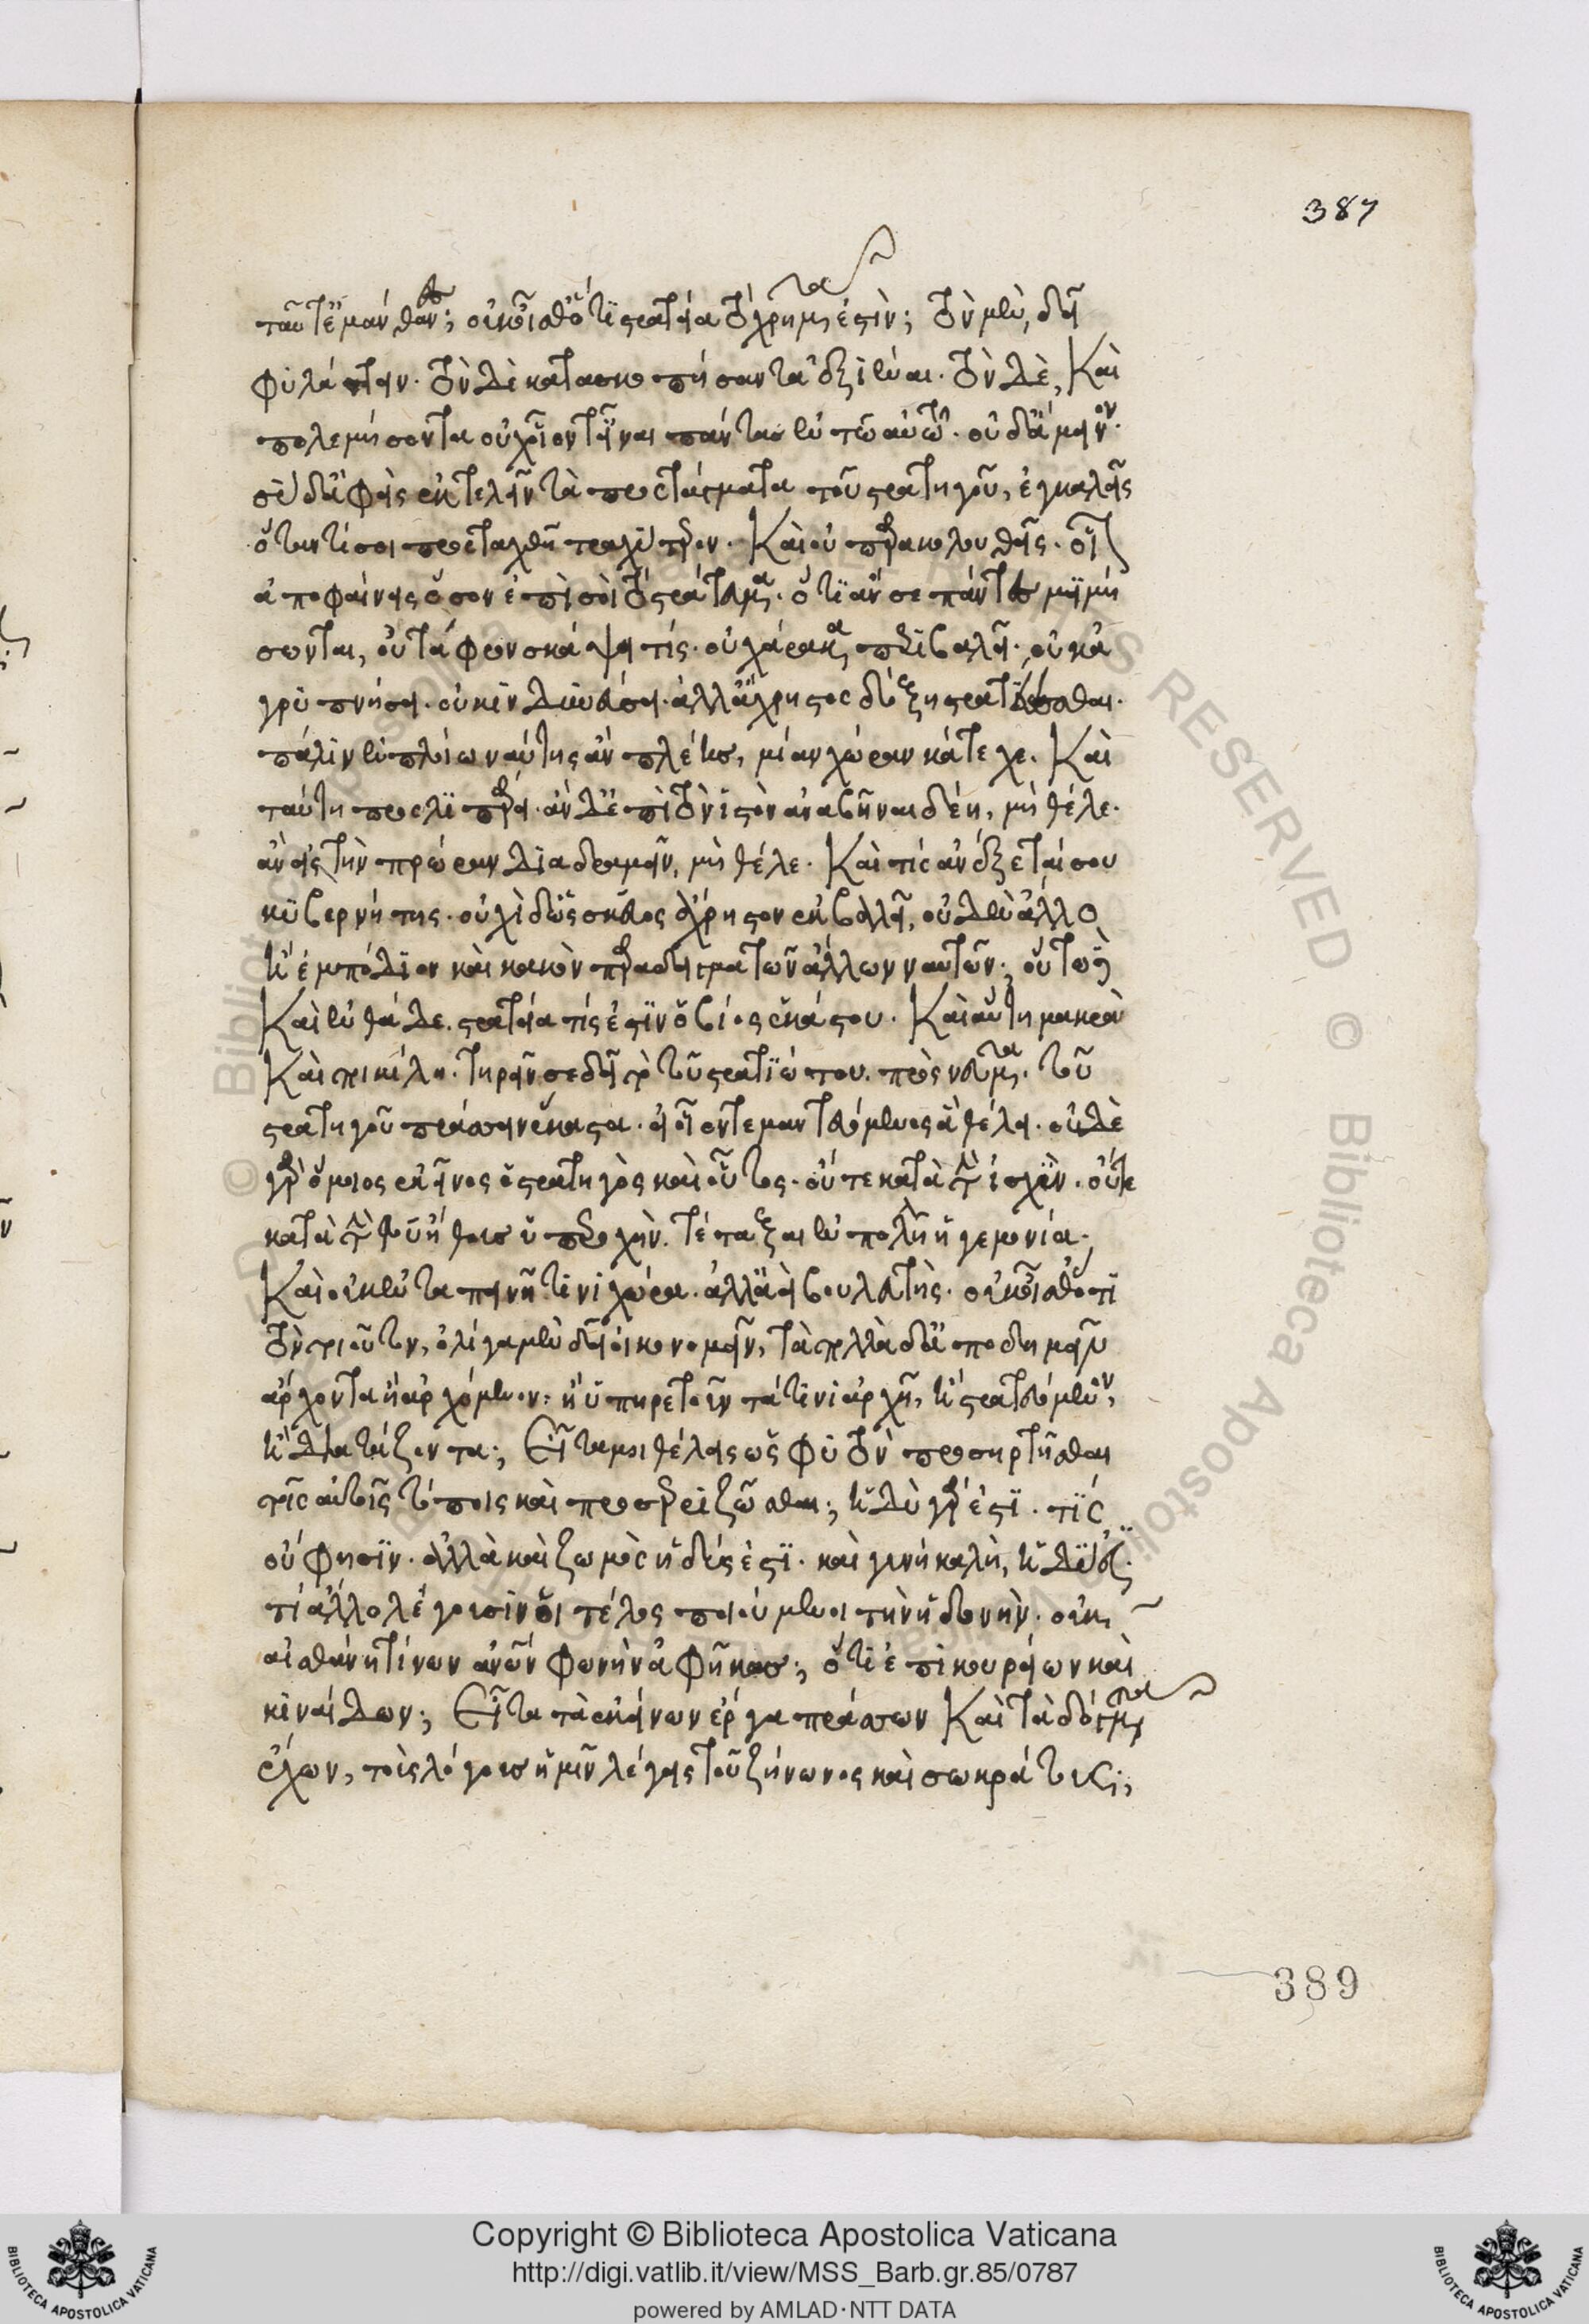 387
ταῦτ' ἐμάνθανες; οὐκ οἶσθ' ὅτι στρατεία τὸ χρῆμά ἐστιν; τὸν μὲν, δεῖ
φυλάττειν. τὸν δὲ κατασκοπήσοντα ἐξιέναι. τὸν δὲ, Καὶ
πολεμήσοντα οὐχ οἷόντ' εἶναι πάντας ἐν τῶ αὐτῶ. οὐδ' ἄμεινον.
σὺ δ' ἀφεὶς ἐκτελεῖν τὰ προστάγματα τοῦ στρατηγοῦ, ἐγκαλεῖς
ὅταν τί σοι προσταχθῆ τραχύτερον. Καὶ οὐ παρακολουθεῖς. οἷον
ἀποφαίνεις ὅσον ἐπὶ σοὶ τὸ στράτευμα. ὅτι ἄν σε πάντες μιμή
σωνται, οὐ τάφρον σκάψει τίς. οὐ χάρακα περιβαλεῖ. οὐκ ἀ
γρυπνήσει. οὐ κινδυνεύσει. ἀλλ' ἄχρηστος δόξει στρατεύεσθαι.
πάλιν ἐν πλοίω ναύτης ἂν πλέης, μίαν χώραν κάτεχε. Καὶ
ταύτη προσλιπάρει. ἂν δ' ἐπὶ τὸν ἱστὸν ἀναβῆναι δέη, μὴ θέλε.
ἂν εἰς τὴν πρώραν διαδραμεῖν, μὴ θέλε. Καὶ τίς ἀνέξεταί σου
κυβερνήτης. οὐχὶ δ' ὡς σκεῦος ἄχρηστον ἐκβαλεῖ, οὐδὲν ἄλλο
ἢ ἐμπόδιον καὶ κακὸν παράδειγμα τῶν ἄλλων ναυτῶν; οὕτως
Καὶ ἐνθάδε. στρατεία τίς ἐστιν ὁ βίος ἑκάστου. Καὶ αὕτη μακρὰ
Καὶ ποικίλη. τηρεῖν σε δεῖ τὸ τοῦ στρατιώτου. πρὸς νεῦμα. τοῦ
στρατηγοῦ πράσσειν ἕκαστα. εἰ οἷόντε μαντευόμενος ἃ θέλει. οὐδὲ
γὰρ ὅμοιος ἐκεῖνος ὁ στρατηγὸς καὶ οὗτος. οὔτε κατὰ τὴν ἰσχὺν. οὔτε
κατὰ τὴν τοῦ ἤθους ὑπεροχὴν. τέταξαι ἐν πόλει ἡγεμονία;
Καὶ οὐκ ἐν ταπεινῆ τινὶ χώρα. ἀλλ' ἀεὶ βουλευτὴς. οὐκ οἶσθ' ὅτι
τὸν τοιοῦτον, ὀλίγα μὲν δεῖ οἰκονομεῖν, τὰ πολλὰ δ' ἀποδημεῖν
ἄρχοντα ἢ ἀρχόμενον; ἢ ὑπηρετοῦντά τινι ἀρχῆ, ἢ στρατευόμενον,
ἢ διατάζοντα; Εἶτά μοι θέλεις ὡς φυτὸν προσηρτῆσθαι
τοῖς αὐτοῖς τόποις καὶ προσερριζῶσθαι; ἡδὺ γάρ ἐστι. τίς
οὔ φησιν. ἀλλὰ καὶ ζωμὸς ἡδύς ἐστι. καὶ γυνὴ καλὴ, ἡδύ ἐστι.
τί ἄλλο λέγουσιν οἱ τέλος ποιούμενοι τὴν ἡδονὴν. οὐκ
αἰσθάνη τίνων ἀνθρώπων φωνὴν ἀφῆκας; ὅτι ἐπικουρείων καὶ
κιναίδων; Εἶτα τὰ ἐκείνων ἔργα πράσσων Καὶ τὰ δόγματα
ἔχων, τοὺς λόγους ἡμῖν λέγεις τοῦ ζήνωνος καὶ σωκράτους;
389
© Biblioteca Apostolica Vaticana
RIGHTS RESERVED
Copyright © Biblioteca Apostolica Vaticana
http://digi.vatlib.it/view/MSS_Barb.gr.85/0787
powered by AMLAD·NTT DATA
BIBLIOTECA APOSTOLICA VATICANA
BIBLIOTECA APOSTOLICA VATICANA